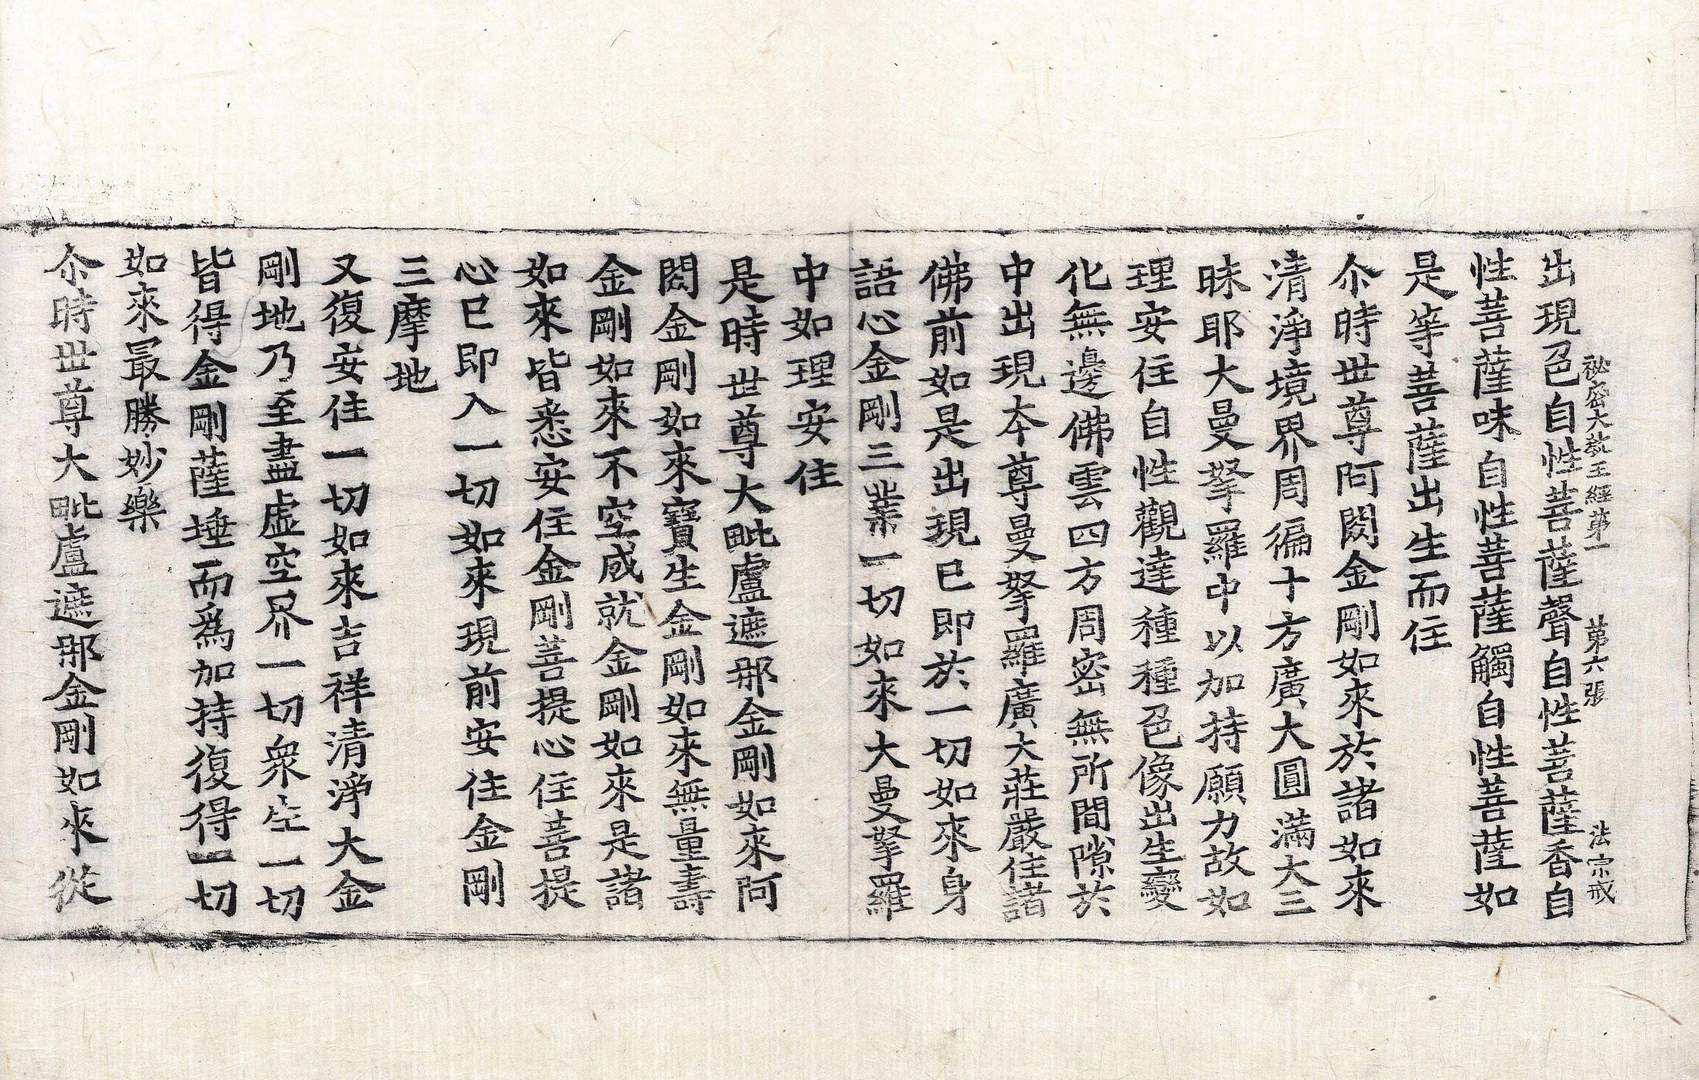 祕密大教王經第一 第六張 法宗戒
出現色自性菩薩聲自性菩薩香自
性菩薩味自性菩薩觸自性菩薩如
是等菩薩出生而住
尒時世尊阿閦金剛如來於諸如來
清淨境界周徧十方廣大圓滿大三
昧耶大曼拏羅中以加持願力故如
理安住自性觀達種種色像出生變
化無邊佛雲四方周密無所間隙於
中出現本尊曼拏羅廣大莊嚴住諸
佛前如是出現已即於一切如來身
語心金剛三業一切如來大曼拏羅
中如理安住
是時世尊大毗盧遮那金剛如來阿
閦金剛如來寶生金剛如來無量壽
金剛如來不空成就金剛如來是諸
如來皆悉安住金剛菩提心住菩提
心已即入一切如來現前安住金剛
三摩地
又復安住一切如來吉祥清淨大金
剛地乃至盡虛空界一切衆生一切
皆得金剛薩埵而爲加持復得一切
如來最勝妙樂
尒時世尊大毗盧遮那金剛如來從